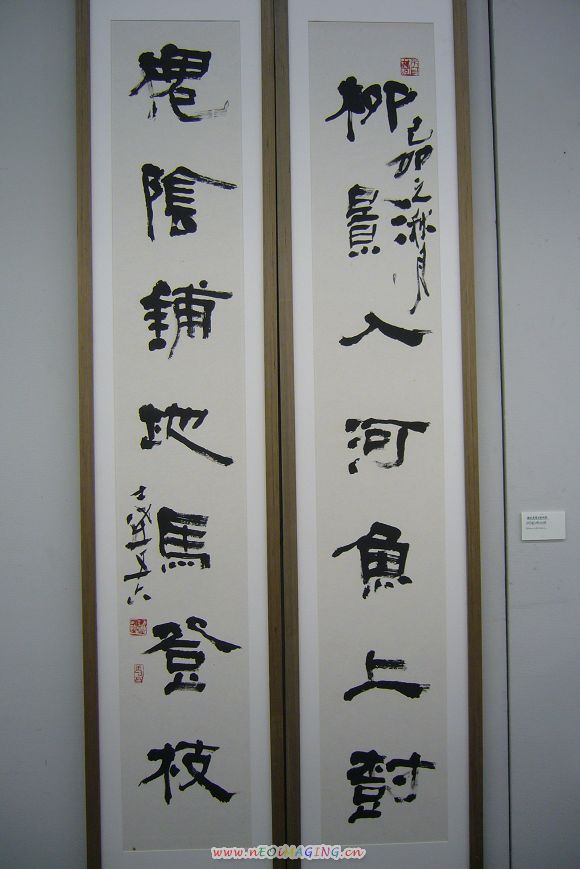 柳景入河魚上尌
己卯之秋月
槐陰鋪地馬登枝
www.nEOiMAGiNG.cn